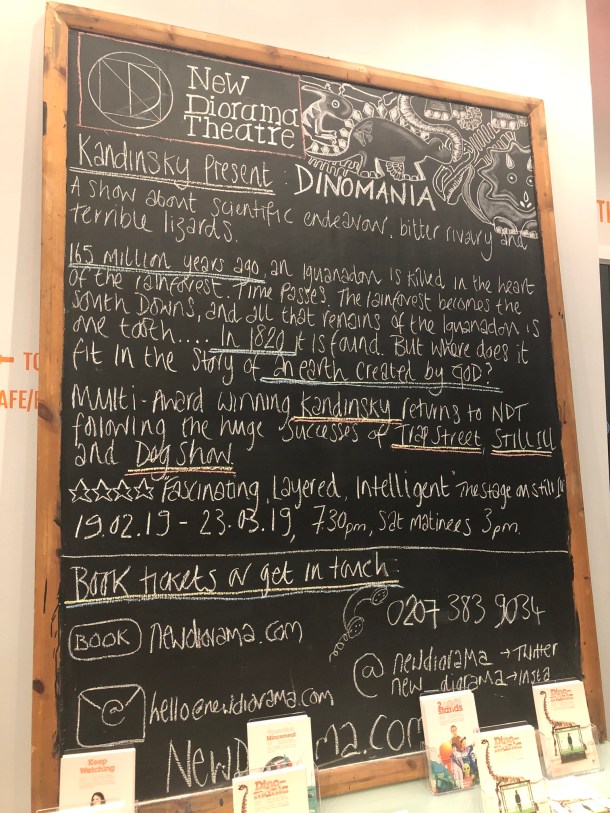 New
Diorama
Theatre
Kandinsky Present : DINOMANIA
A show about scientific endeavour, bitter rivalry and
terrible lizards.
165 million years ago, an Iguanadon is killed in the heart
of the rainforest. Time passes. The rainforest becomes the
South Downs, and all that remains of the Iguanadon is
one tooth.... In 1820 it is found. But where does it
fit in the story of an earth created by GOD?
Multi-Award winning Kandinsky returns to NDT
following the huge successes of Trap Street, Still Ill
and Dog Show.
☆☆☆☆ "Fascinating, Layered, Intelligent" The Stage on Still Ill
19.02.19 - 23.03.19, 7.30pm, Sat matinees 3pm.
Book tickets or get in touch:
BOOK newdiorama.com
0207 383 9034
@ newdiorama → Twitter
new_diorama → Insta
@ hello@newdiorama.com
NewD ma.com
Keep
Watching
Dino-
Bands
Dino-
TO
AFE/
TH